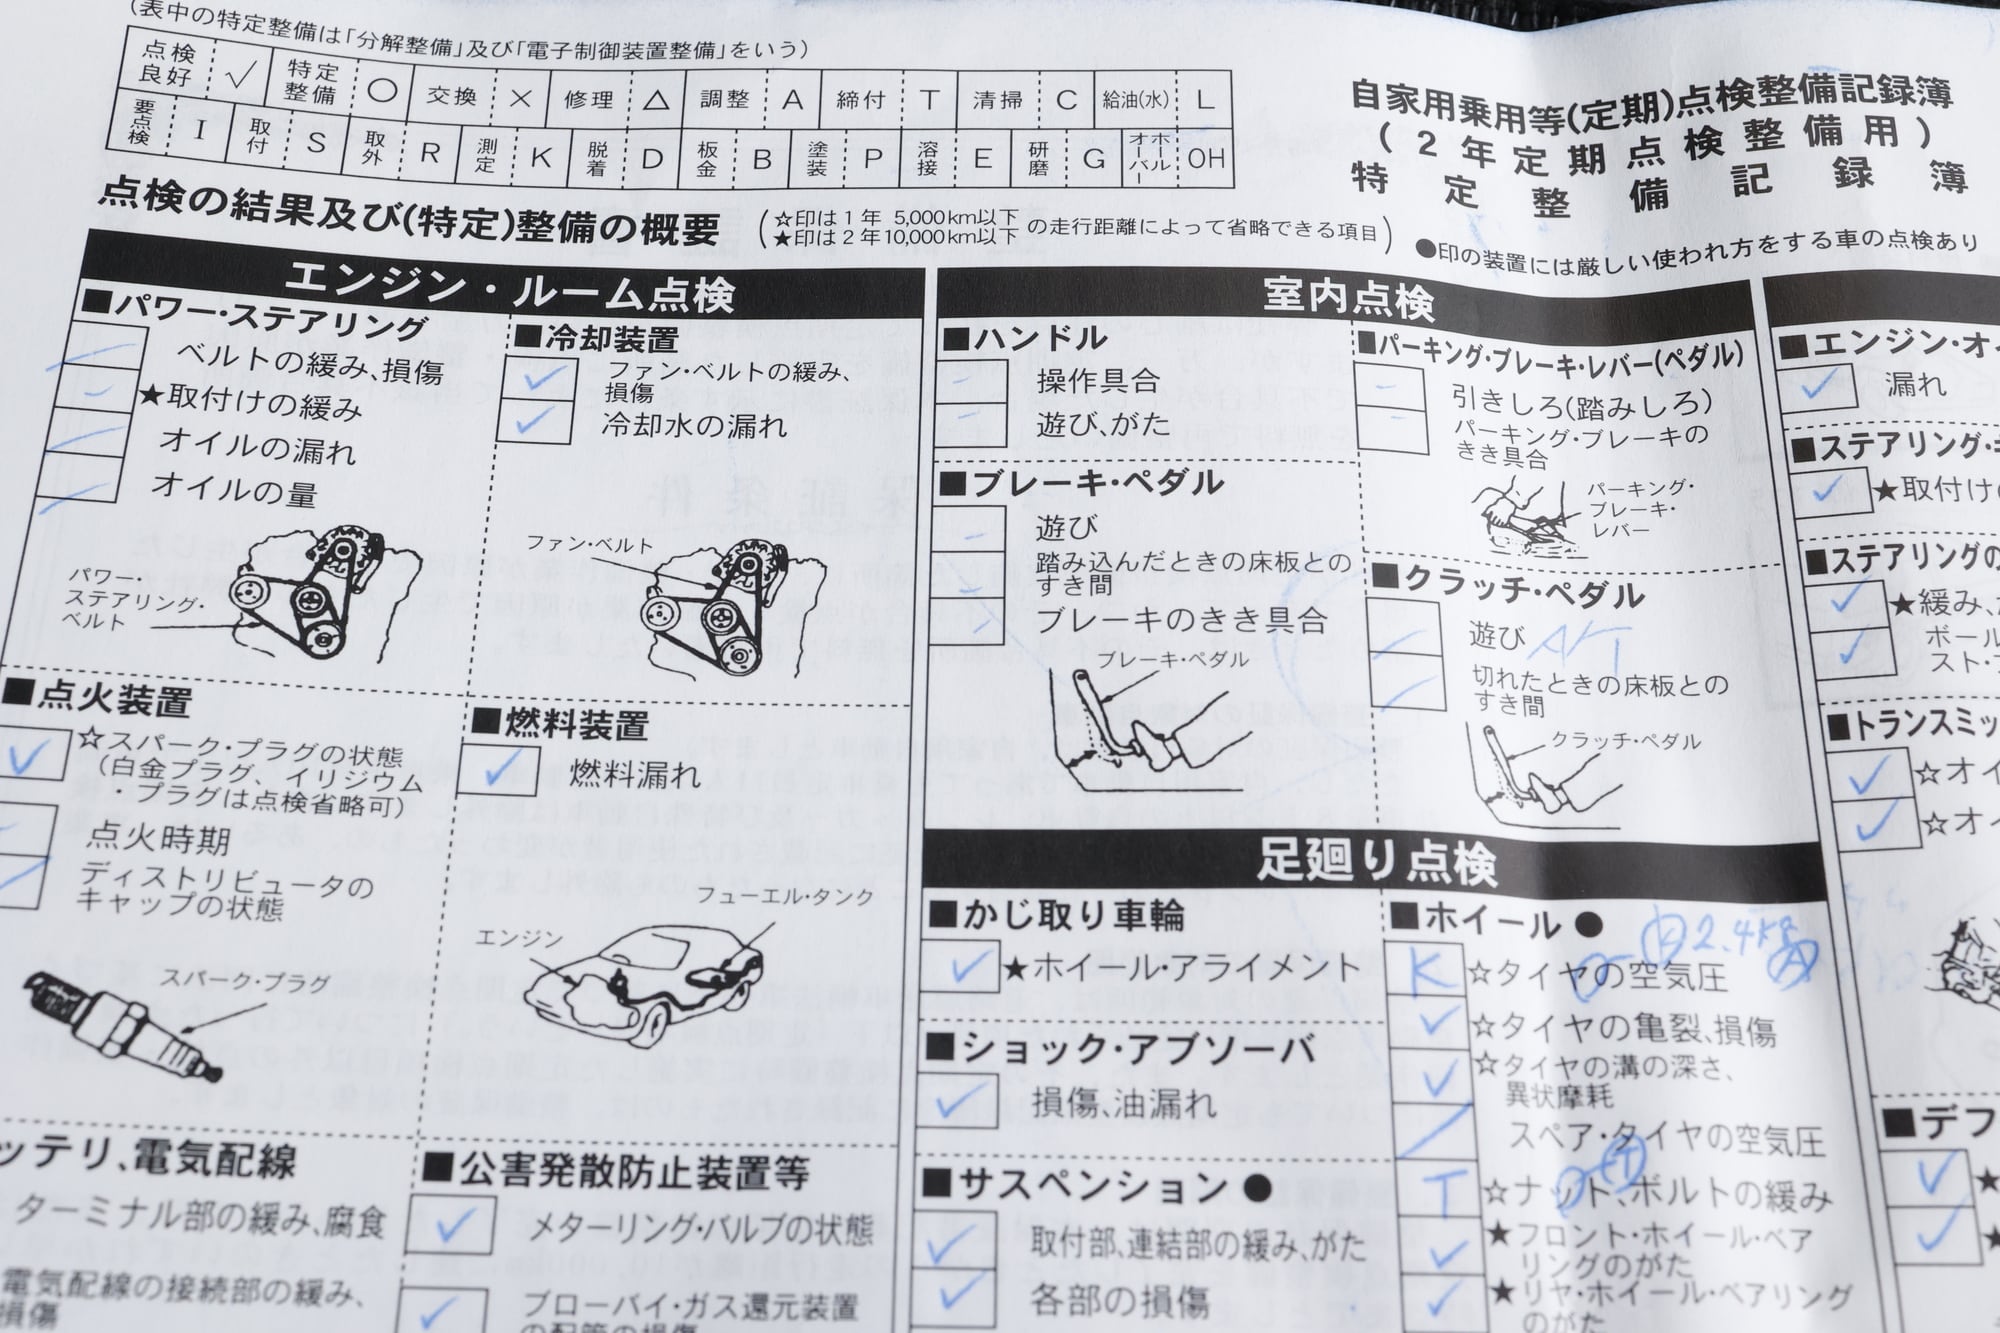 (表中の特定整備は「分解整備」及び「電子制御装置整備」をいう)
点検良好 √ 特定整備 ○ 交換 × 修理 △ 調整 A 締付 T 清掃 C 給油(水) L
要点検 I 取付 S 取外 R 測定 K 脱着 D 板金 B 塗装 P 溶接 E 研磨 G オーバーホール OH
自家用乗用等(定期)点検整備記録簿
(2年定期点検整備用)
特定整備記録簿
点検の結果及び(特定)整備の概要
(☆印は1年 5,000km以下
★印は2年10,000km以下 の走行距離によって省略できる項目)
●印の装置には厳しい使われ方をする車の点検あり
エンジン・ルーム点検
■パワー・ステアリング
ベルトの緩み、損傷
★取付けの緩み
オイルの漏れ
オイルの量
パワー・
ステアリング・
ベルト
■冷却装置
✓ ファン・ベルトの緩み、
損傷
✓ 冷却水の漏れ
ファン・ベルト
■点火装置
✓ ☆スパーク・プラグの状態
(白金プラグ、イリジウム
・プラグは点検省略可)
点火時期
ディストリビュータの
キャップの状態
スパーク・プラグ
■燃料装置
✓ 燃料漏れ
フューエル・タンク
エンジン
ッテリ、電気配線
ターミナル部の緩み、腐食
電気配線の接続部の緩み、
損傷
■公害発散防止装置等
✓ メターリング・バルブの状態
✓ ブローバイ・ガス還元装置
の配管の損傷
室内点検
■ハンドル
操作具合
遊び、がた
■ブレーキ・ペダル
遊び
踏み込んだときの床板との
すき間
ブレーキのきき具合
ブレーキ・ペダル
■パーキング・ブレーキ・レバー(ペダル)
引きしろ(踏みしろ)
パーキング・ブレーキの
きき具合
パーキング・
ブレーキ・
レバー
■クラッチ・ペダル
遊び A/T
切れたときの床板との
すき間
クラッチ・ペダル
足廻り点検
■かじ取り車輪
✓ ★ホイール・アライメント
■ショック・アブソーバ
✓ 損傷、油漏れ
■サスペンション●
✓ 取付部、連結部の緩み、がた
✓ 各部の損傷
■ホイール● 2.4kg
K ☆タイヤの空気圧
✓ ☆タイヤの亀裂、損傷
✓ ☆タイヤの溝の深さ、
異状摩耗
スペア・タイヤの空気圧
T ☆ナット、ボルトの緩み
✓ ★フロント・ホイール・ベア
リングのがた
✓ ★リヤ・ホイール・ベアリング
のがた
■エンジン・オイ
✓ 漏れ
■ステアリング・ギ
✓ ★取付け
■ステアリングの
✓ ★緩み、
✓ ボール
スト・
■トランスミッ
✓ ☆オイ
✓ ☆オイ
■デフ
✓ ★
✓ ★